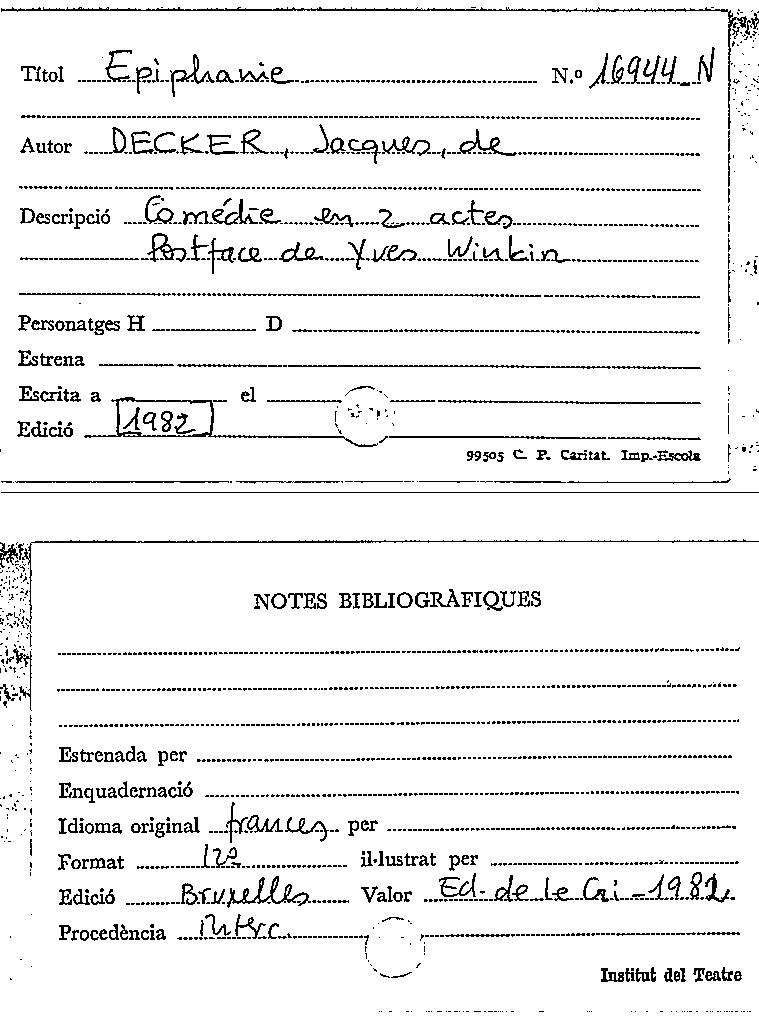 Títol Epiphanie N.º 16944_N
Autor DECKER, Jacques, de
Descripció Comédie en 2 actes
Postface de Yves Winkin
Personatges H D
Estrena
Escrita a el
Edició 1982
99505 C. P. Caritat. Imp.-Escola
NOTES BIBLIOGRÀFIQUES
Estrenada per
Enquadernació
Idioma original frances per
Format 12º il·lustrat per
Edició Bruxelles Valor Ed. de le Cri - 1982
Procedència Interc.
Institut del Teatre